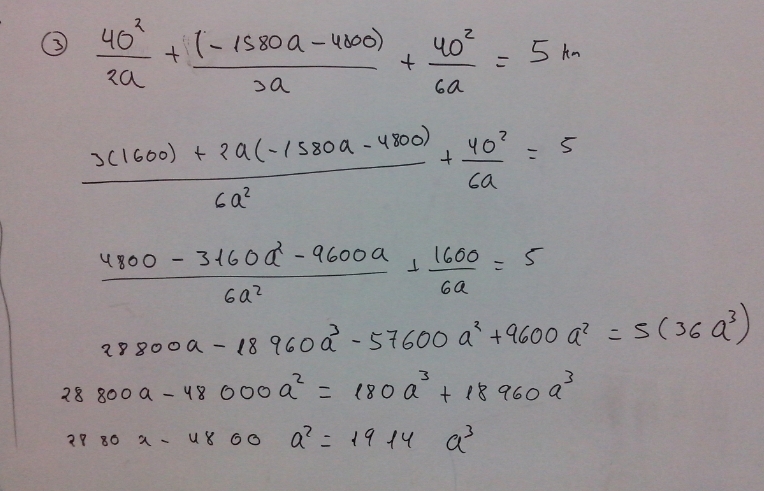 ③ 40²/2a + (-1580a - 4800)/3a + 40²/6a = 5 km
3(1600) + 2a(-1580a - 4800)/6a² + 40²/6a = 5
4800 - 3160a² - 9600a/6a² + 1600/6a = 5
28800a - 18960a³ - 57600a² + 9600a² = 5(36a³)
28 800a - 48 000a² = 180a³ + 18 960a³
2880 a - 4800 a² = 1914 a³